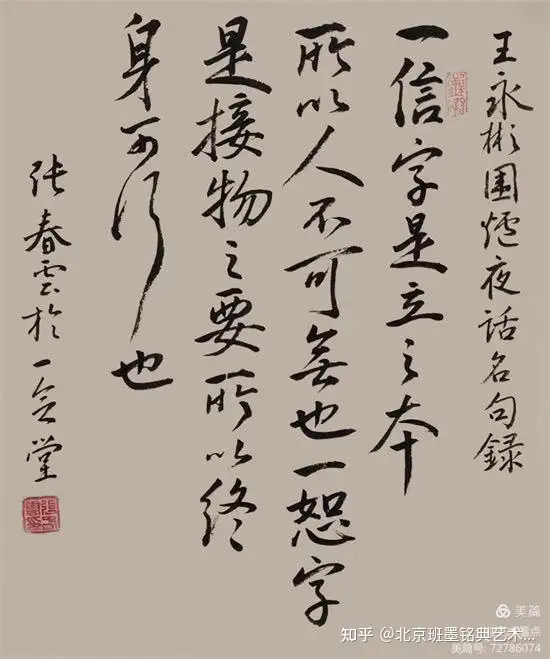 王永彬圍爐夜話名句錄
一信字是立之本
所以人不可無也一恕字
是接物之要所以終
身可行也
張春雲於一念堂
美篇
知乎 @北京班墨铭典艺术...
美篇号: 72786074